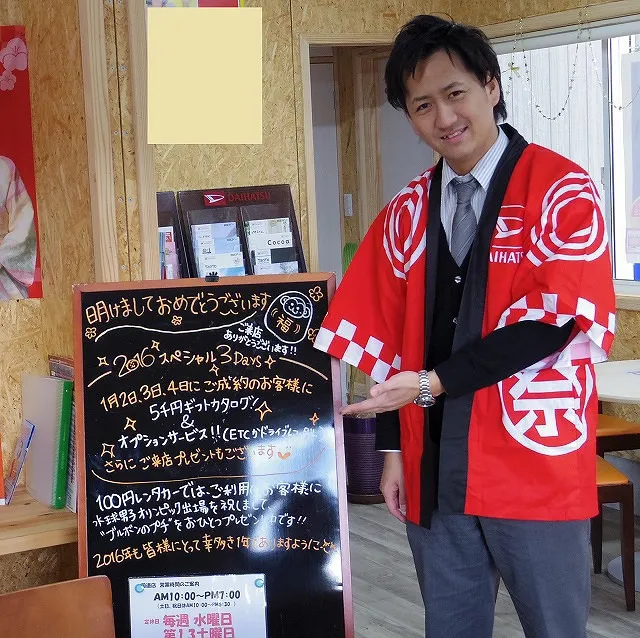 DAIHATSU
Cocoa
Tanto
明けましておめでとうございます
福
ご来店
ありがとうございます!!
2016 スペシャル3Days
1月2日、3日、4日にご成約のお客様に
5千円ギフトカタログ!!
&
オプションサービス!!(ETCかドライブレコ
さらにご来店プレゼントもございます
100円レンタカーでは、ご利用のお客様に
水球男子オリンピック出場を祝しまして、
"ブルボンのプチ"をおひとつプレゼント中です!!
2016年も皆様にとって幸多き1年でありますように
営業時間のご案内
AM10:00〜PM7:00
(土日、祝日はAM10:00〜PM6:30)
定休日 毎週 水曜日
第1.3土曜日
DAIHATSU
祭